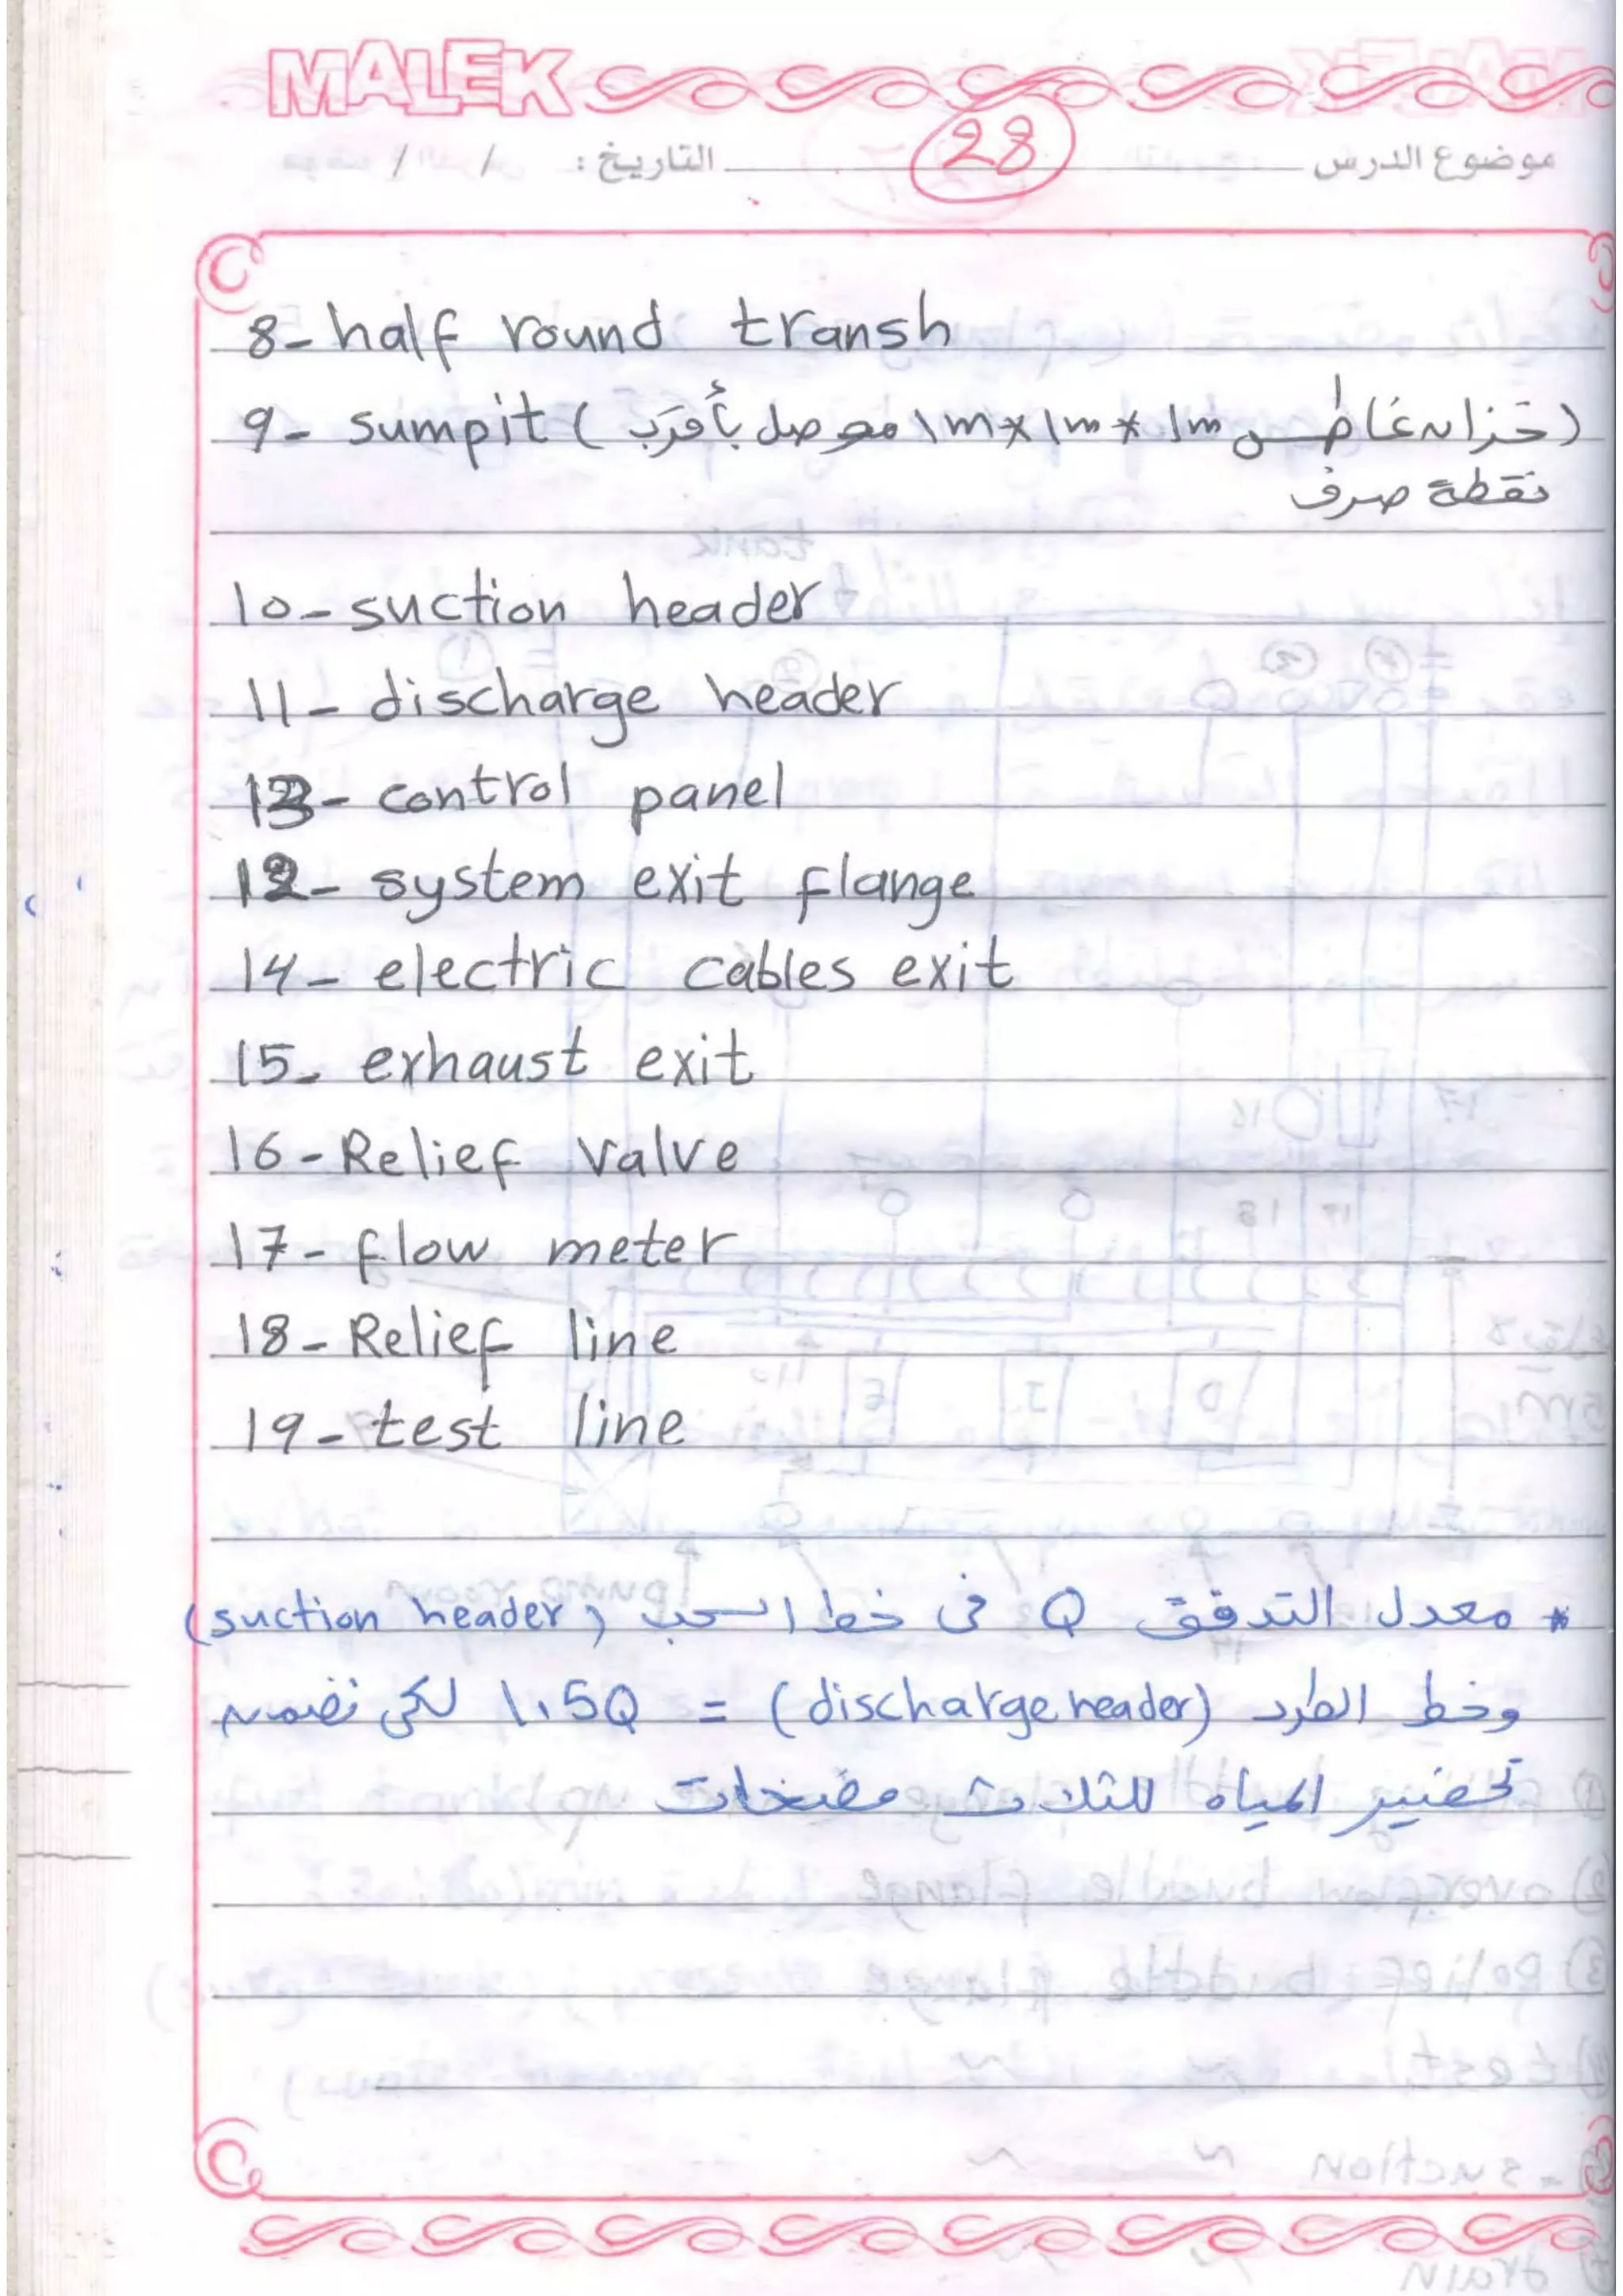 MALEK
موضوع الدرس 28 التاريخ : / /
8- half round transh
9- sumpit (خزان غاطس 1m x 1m x 1m موصل بأقرب
نقطة صرف)
10- suction header
11- discharge header
13- control panel
12- system exit flange
14- electric cables exit
15- exhaust exit
16- Relief valve
17- flow meter
18- Relief line
19- test line
* معدل التدفق Q فى خط السحب (suction header)
وخط الطرد (discharge header) = 1.5Q لكى نضمن
تحضير المياه للثلاث مضخات